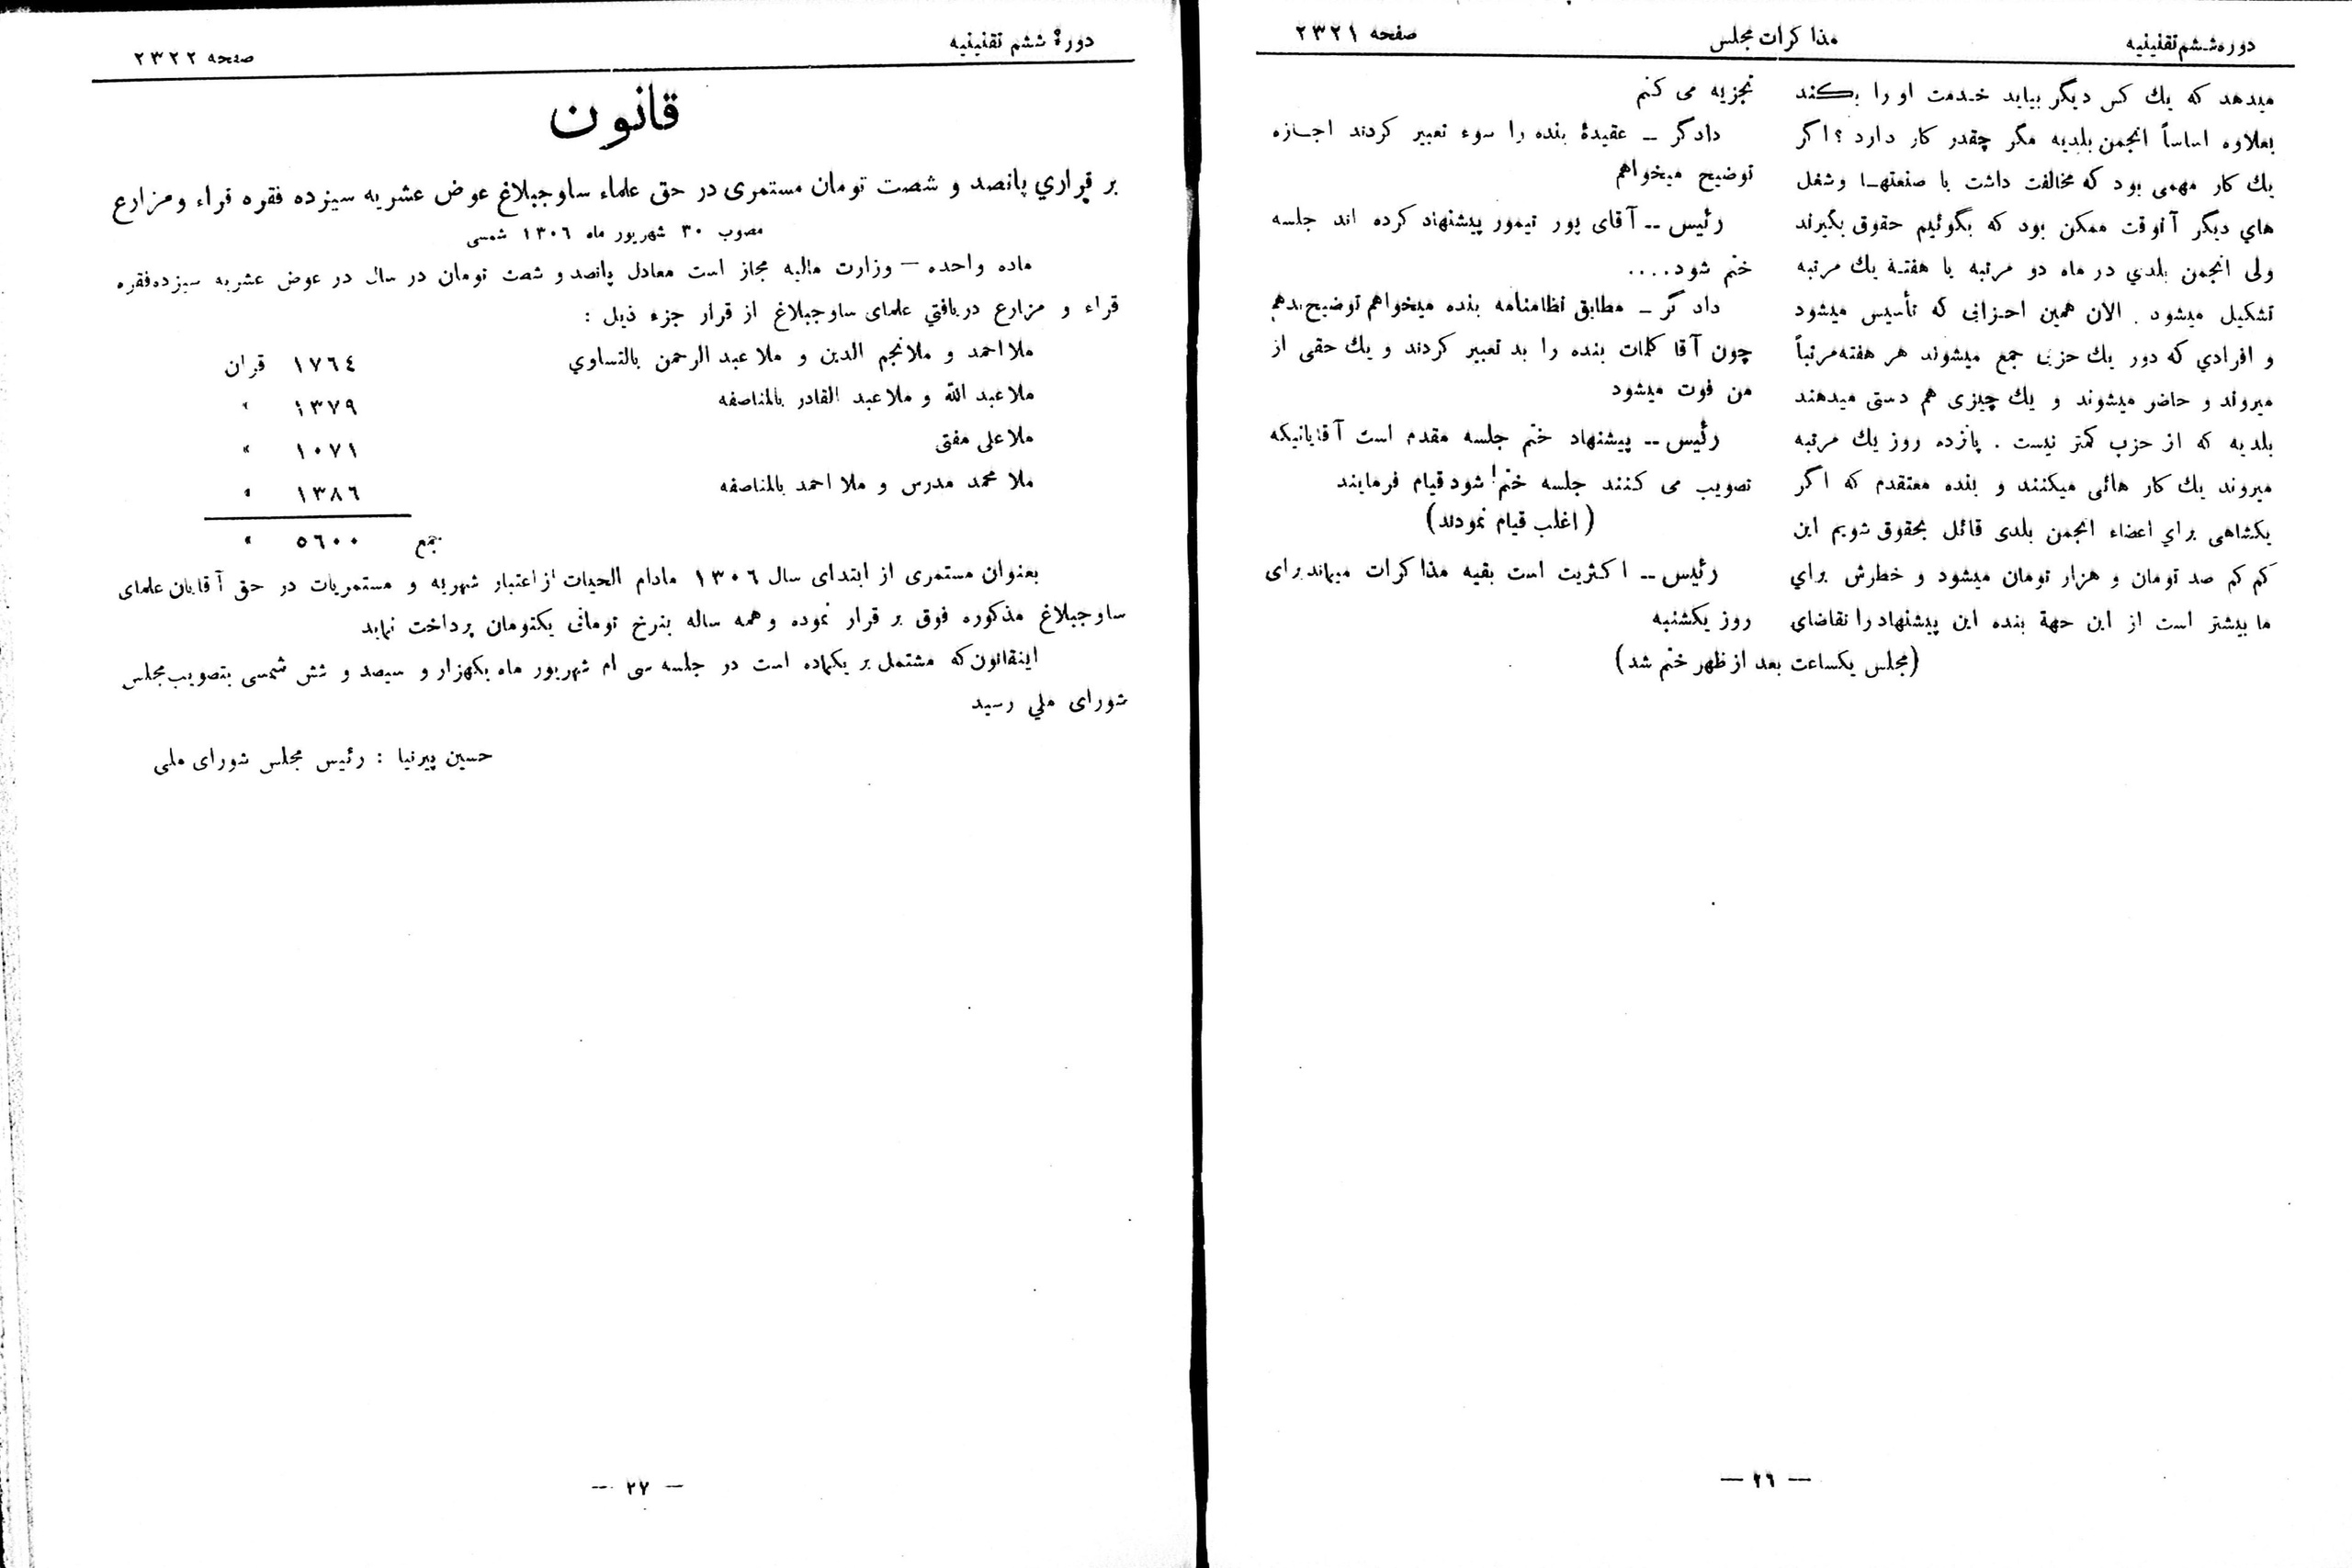 دوره ششم تقنینیه
مذاکرات مجلس
صفحه ۲۳۲۱
میدهد که یك کس دیگر بیاید خدمت او را بکند
بعلاوه اساساً انجمن بلدیه مگر چقدر کار دارد ؟ اگر
یك کار مهمی بود که مخالفت داشت با صنعتها وشغل
هاي دیگر آنوقت ممکن بود که بگوئیم حقوق بگیرند
ولی انجمن بلدي در ماه دو مرتبه یا هفتۀ یك مرتبه
تشکیل میشود . الان همین احزابی که تأسیس میشود
و افرادي که دور یك حزبی جمع میشوند هر هفته مرتباً
میروند و حاضر میشوند و یك چیزی هم دستی میدهند
بلدیه که از حزب کمتر نیست . پانزده روز یك مرتبه
میروند یك کار هائی میکنند و بنده معتقدم که اگر
یکشاهی براي اعضاء انجمن بلدی قائل بحقوق شویم این
کم کم صد تومان و هزار تومان میشود و خطرش براي
ما بیشتر است از این جهة بنده این پیشنهاد را تقاضای
تجزیه می کنم
دادگر ــ عقیدۀ بنده را سوء تعبیر کردند اجازه
توضیح میخواهم
رئیس ــ آقای پور تیمور پیشنهاد کرده اند جلسه
ختم شود....
دادگر ــ مطابق نظامنامه بنده میخواهم توضیح بدهم
چون آقا کلمات بنده را بد تعبیر کردند و یك حقی از
من فوت میشود
رئیس ــ پیشنهاد ختم جلسه مقدم است آقایانیکه
تصویب می کنند جلسه ختم شود قیام فرمایند
(اغلب قیام نمودند)
رئیس ــ اکثریت است بقیه مذاکرات میماند برای
روز یکشنبه
(مجلس یکساعت بعد از ظهر ختم شد)
— ۲٦ —
دورۀ ششم تقنینیه
صفحه ۲۳۲۲
قانون
بر قراري پانصد و شصت تومان مستمری در حق علماء ساوجبلاغ عوض عشریه سیزده فقره قراء و مزارع
مصوب ۳۰ شهریور ماه ۱۳۰٦ شمسی
ماده واحده — وزارت مالیه مجاز است معادل پانصد و شصت تومان در سال در عوض عشریه سیزده فقره
قراء و مزارع دریافتي علمای ساوجبلاغ از قرار جزء ذیل :
ملا احمد و ملا نجم الدین و ملا عبد الرحمن بالتساوي ۱۷٦٤ قران
ملا عبد الله و ملا عبد القادر بالمناصفه ۱۳۷۹ »
ملا علی مفتی ۱۰۷۱ »
ملا محمد مدرس و ملا احمد بالمناصفه ۱۳۸٦ »
جمع ٥٦۰۰ »
بعنوان مستمری از ابتدای سال ۱۳۰٦ مادام الحیات از اعتبار شهریه و مستمریات در حق آقایان علمای
ساوجبلاغ مذکوره فوق بر قرار نموده و همه ساله بنرخ تومانی یکتومان پرداخت نماید
اینقانون که مشتمل بر یکماده است در جلسه سی ام شهریور ماه یکهزار و سیصد و شش شمسی بتصویب مجلس
شورای ملي رسید
حسین پیرنیا : رئیس مجلس شورای ملی
— ۲۷ —